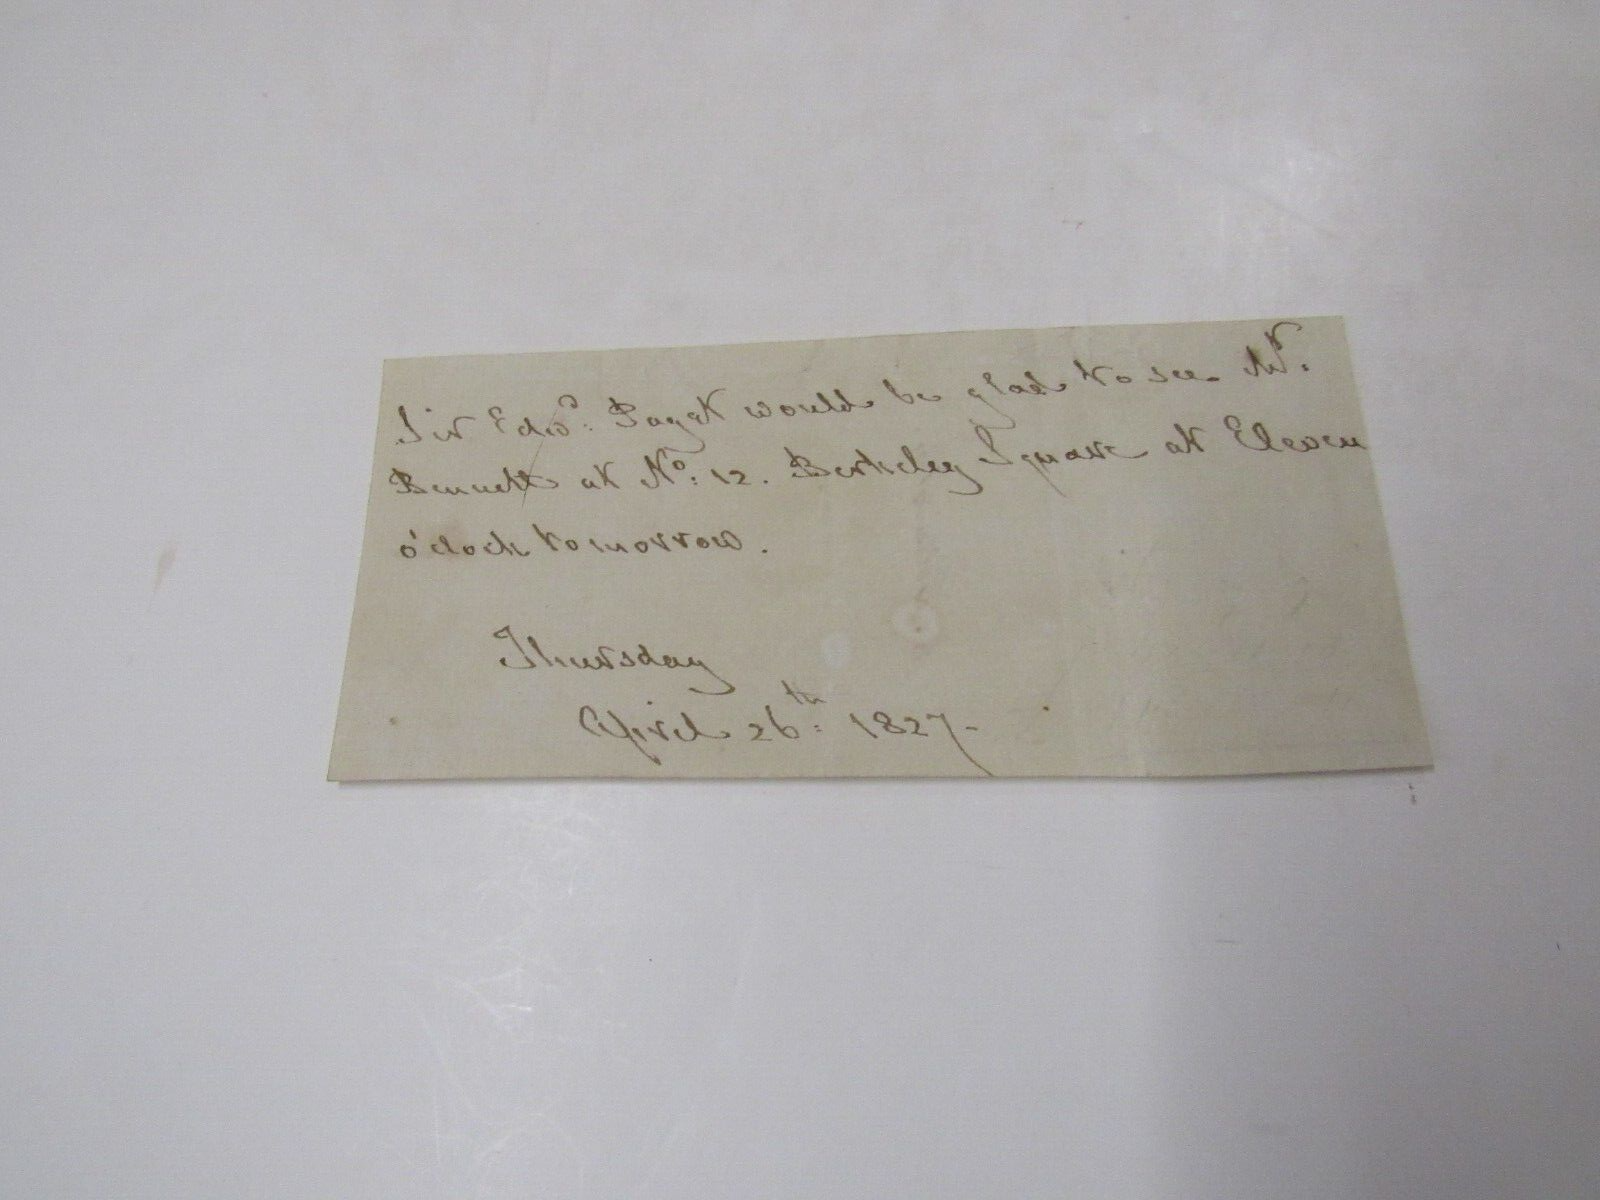 Sir Edwd: Paget would be glad to see Mr.
Bennett at No: 12. Berkeley Square at Eleven
o'clock tomorrow.
Thursday
April 26th: 1827-